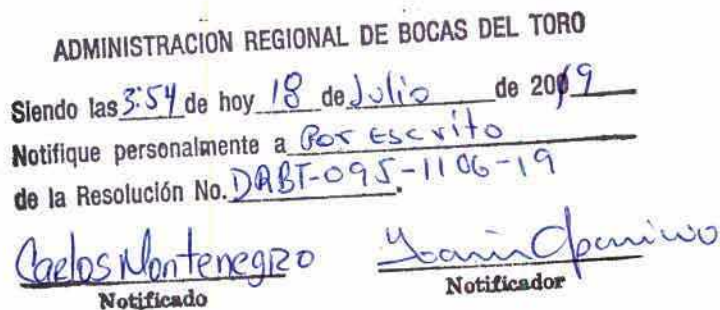 ADMINISTRACION REGIONAL DE BOCAS DEL TORO
Siendo las 3:54 de hoy 18 de Julio de 2019
Notifique personalmente a Por Escrito
de la Resolución No. DRBT-095-1106-19.
Carlos Montenegro
Notificado Notificador